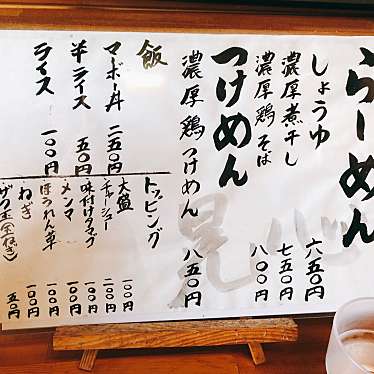 らーめん
しょうゆ 六五〇円
濃厚煮干し 七五〇円
濃厚鶏そば 八〇〇円
つけめん
濃厚鶏つけめん 八五〇円
飯
マーボー丼 二五〇円
半ライス 五〇円
ライス 一〇〇円
トッピング
大盛 一〇〇円
チャーシュー 二〇〇円
味付けタマゴ 一〇〇円
メンマ 一〇〇円
ほうれん草 一〇〇円
ねぎ 一〇〇円
ザク玉(玉ねぎ) 五〇円